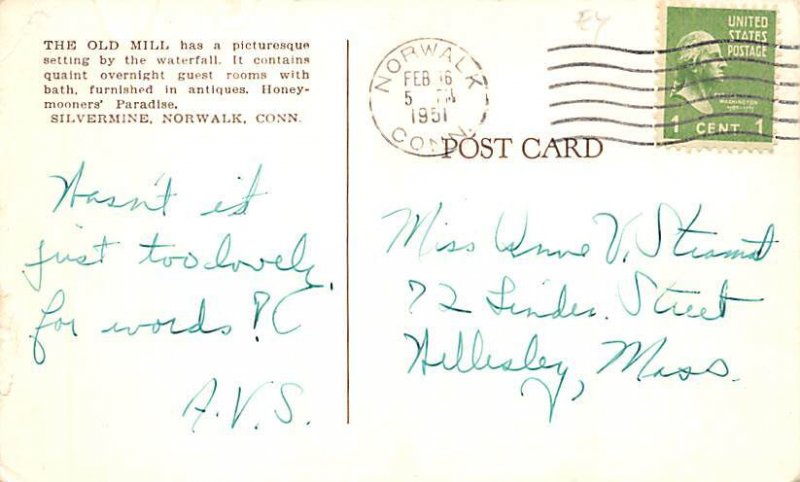 THE OLD MILL has a picturesque
setting by the waterfall. It contains
quaint overnight guest rooms with
bath, furnished in antiques. Honey-
mooners' Paradise.
SILVERMINE, NORWALK, CONN.
Wasn't it
just too lovely
for words!
A.V.S.
EY
NORWALK
FEB 16
5 PM
1951
CONN.
UNITED
STATES
POSTAGE
WASHINGTON
1 CENT 1
POST CARD
Miss Anne V.
72 Linden Street
Wellesley, Mass.